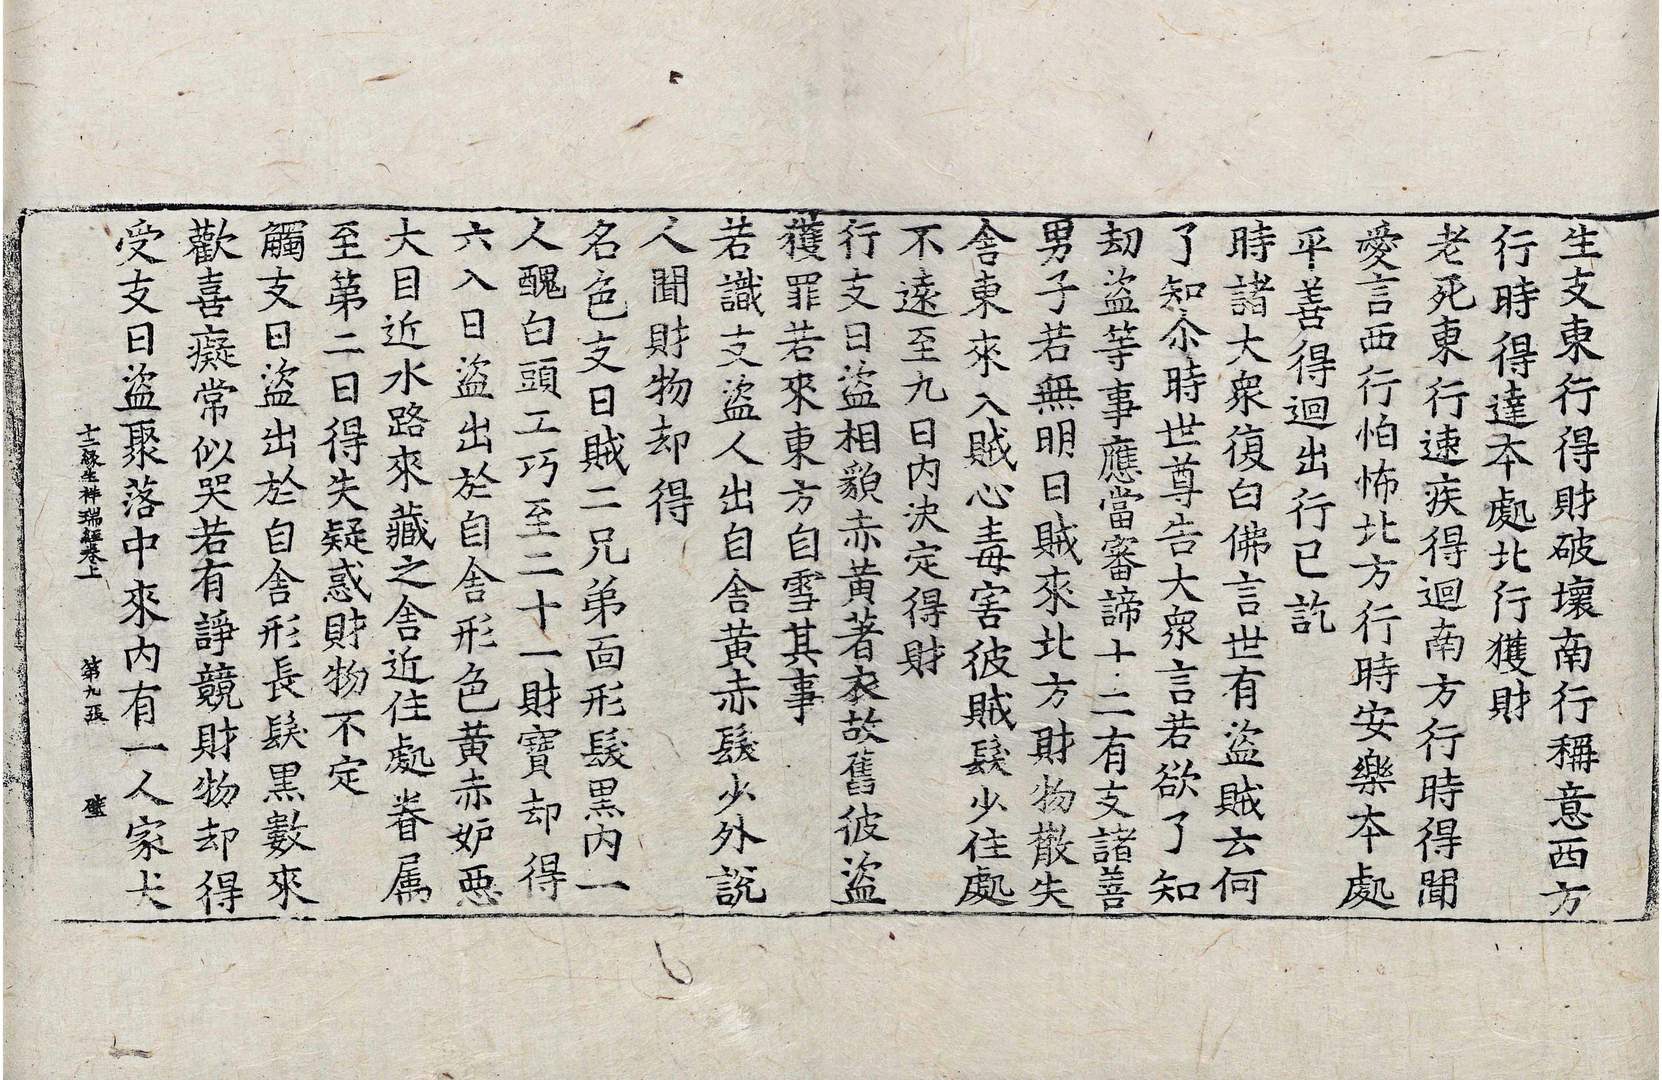 生支東行得財破壞南行稱意西方
行時得達本處北行獲財
老死東行速疾得迴南方行時得聞
愛言西行怕怖北方行時安樂本處
平善得迴出行已訖
時諸大衆復白佛言世有盜賊云何
了知尒時世尊告大衆言若欲了知
劫盜等事應當審諦十二有支諸善
男子若無明日賊來北方財物散失
舍東來入賊心毒害彼賊髮少住處
不遠至九日內決定得財
行支日盜相貌赤黃著衣故舊彼盜
獲罪若來東方自雪其事
若識支盜人出自舍黃赤髮少外說
人聞財物却得
名色支日賊二兄弟面形髮黑內一
人醜白頭工巧至二十一財寶却得
六入日盜出於自舍形色黃赤妒惡
大目近水路來藏之舍近住處眷属
至第二日得失疑惑財物不定
觸支日盜出於自舍形長髮黑數來
歡喜癡常似哭若有諍競財物却得
受支日盜聚落中來內有一人家犬
十二緣生祥瑞經卷上 第九張 璧